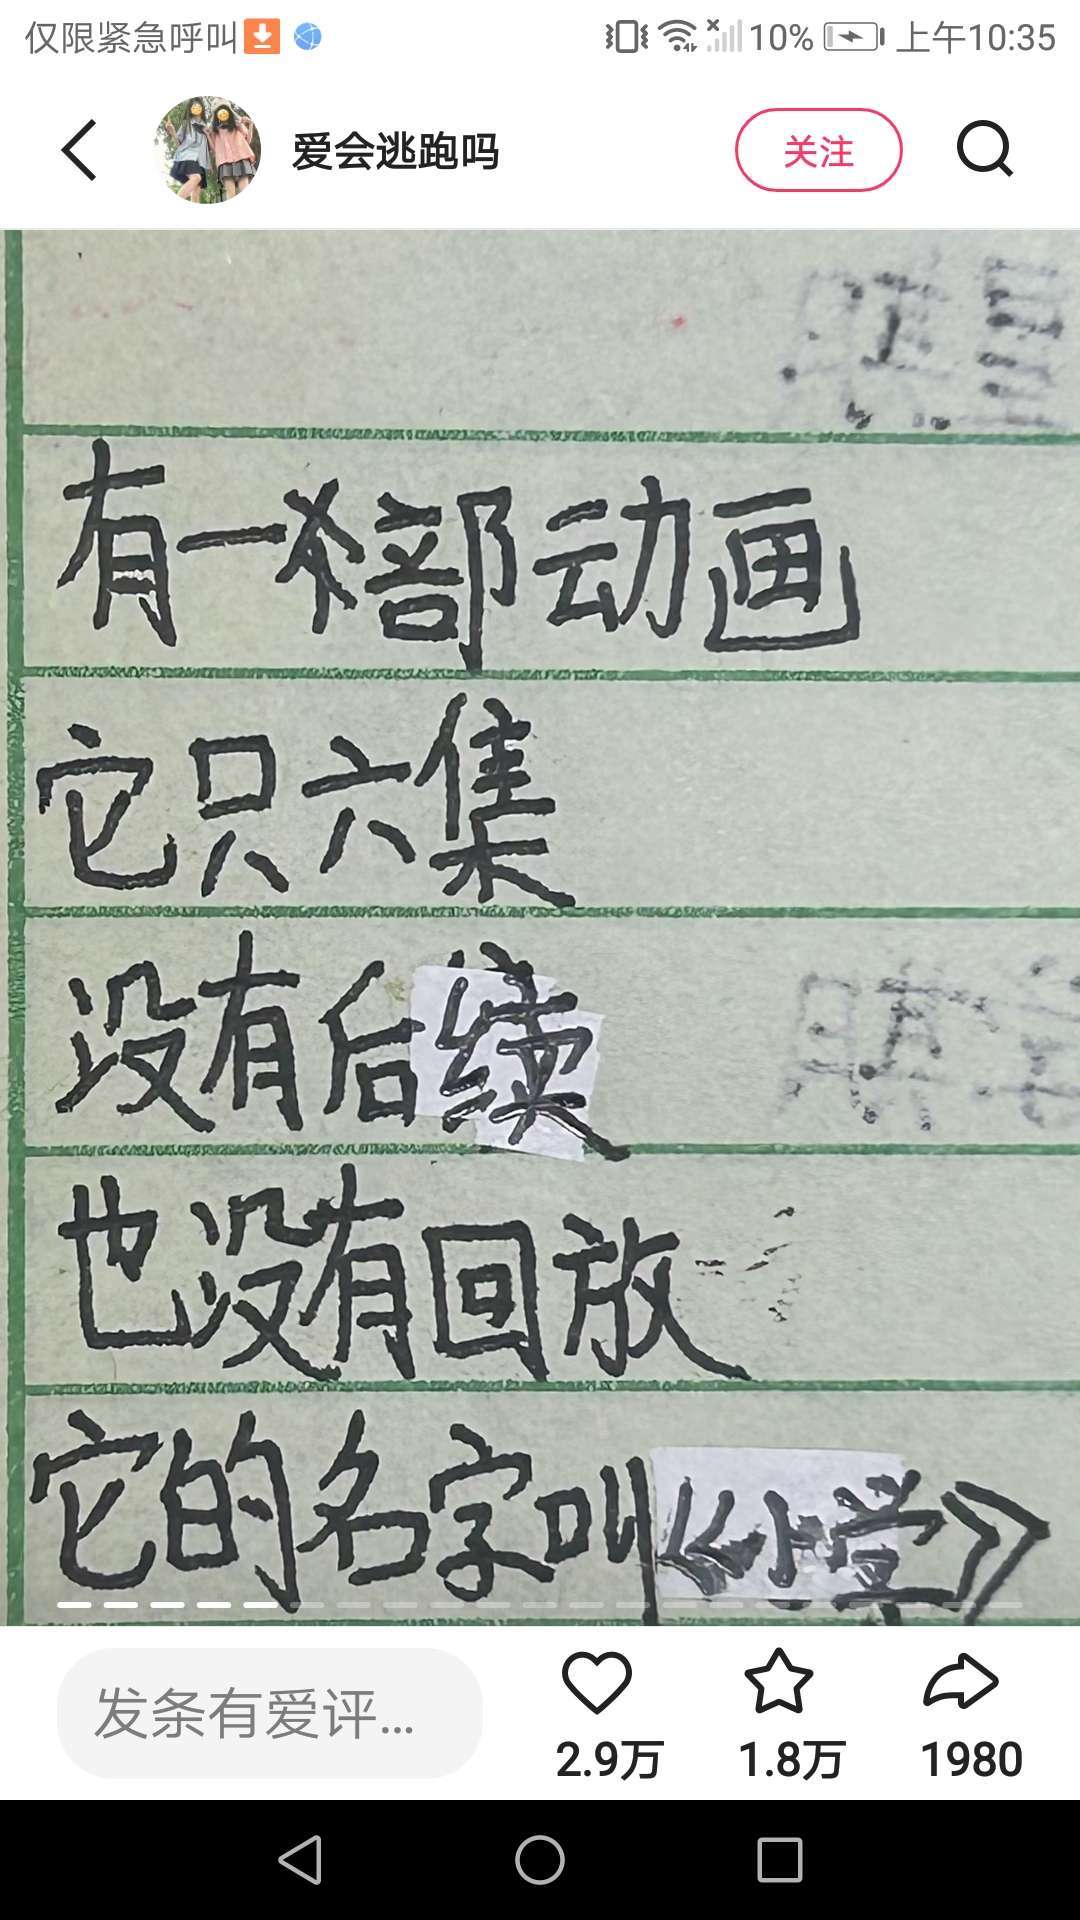 仅限紧急呼叫 10% 上午10:35
爱会逃跑吗 关注
有一部动画
它只六集
没有后续
也没有回放
它的名字叫《小学》
发条有爱评...
2.9万 1.8万 1980